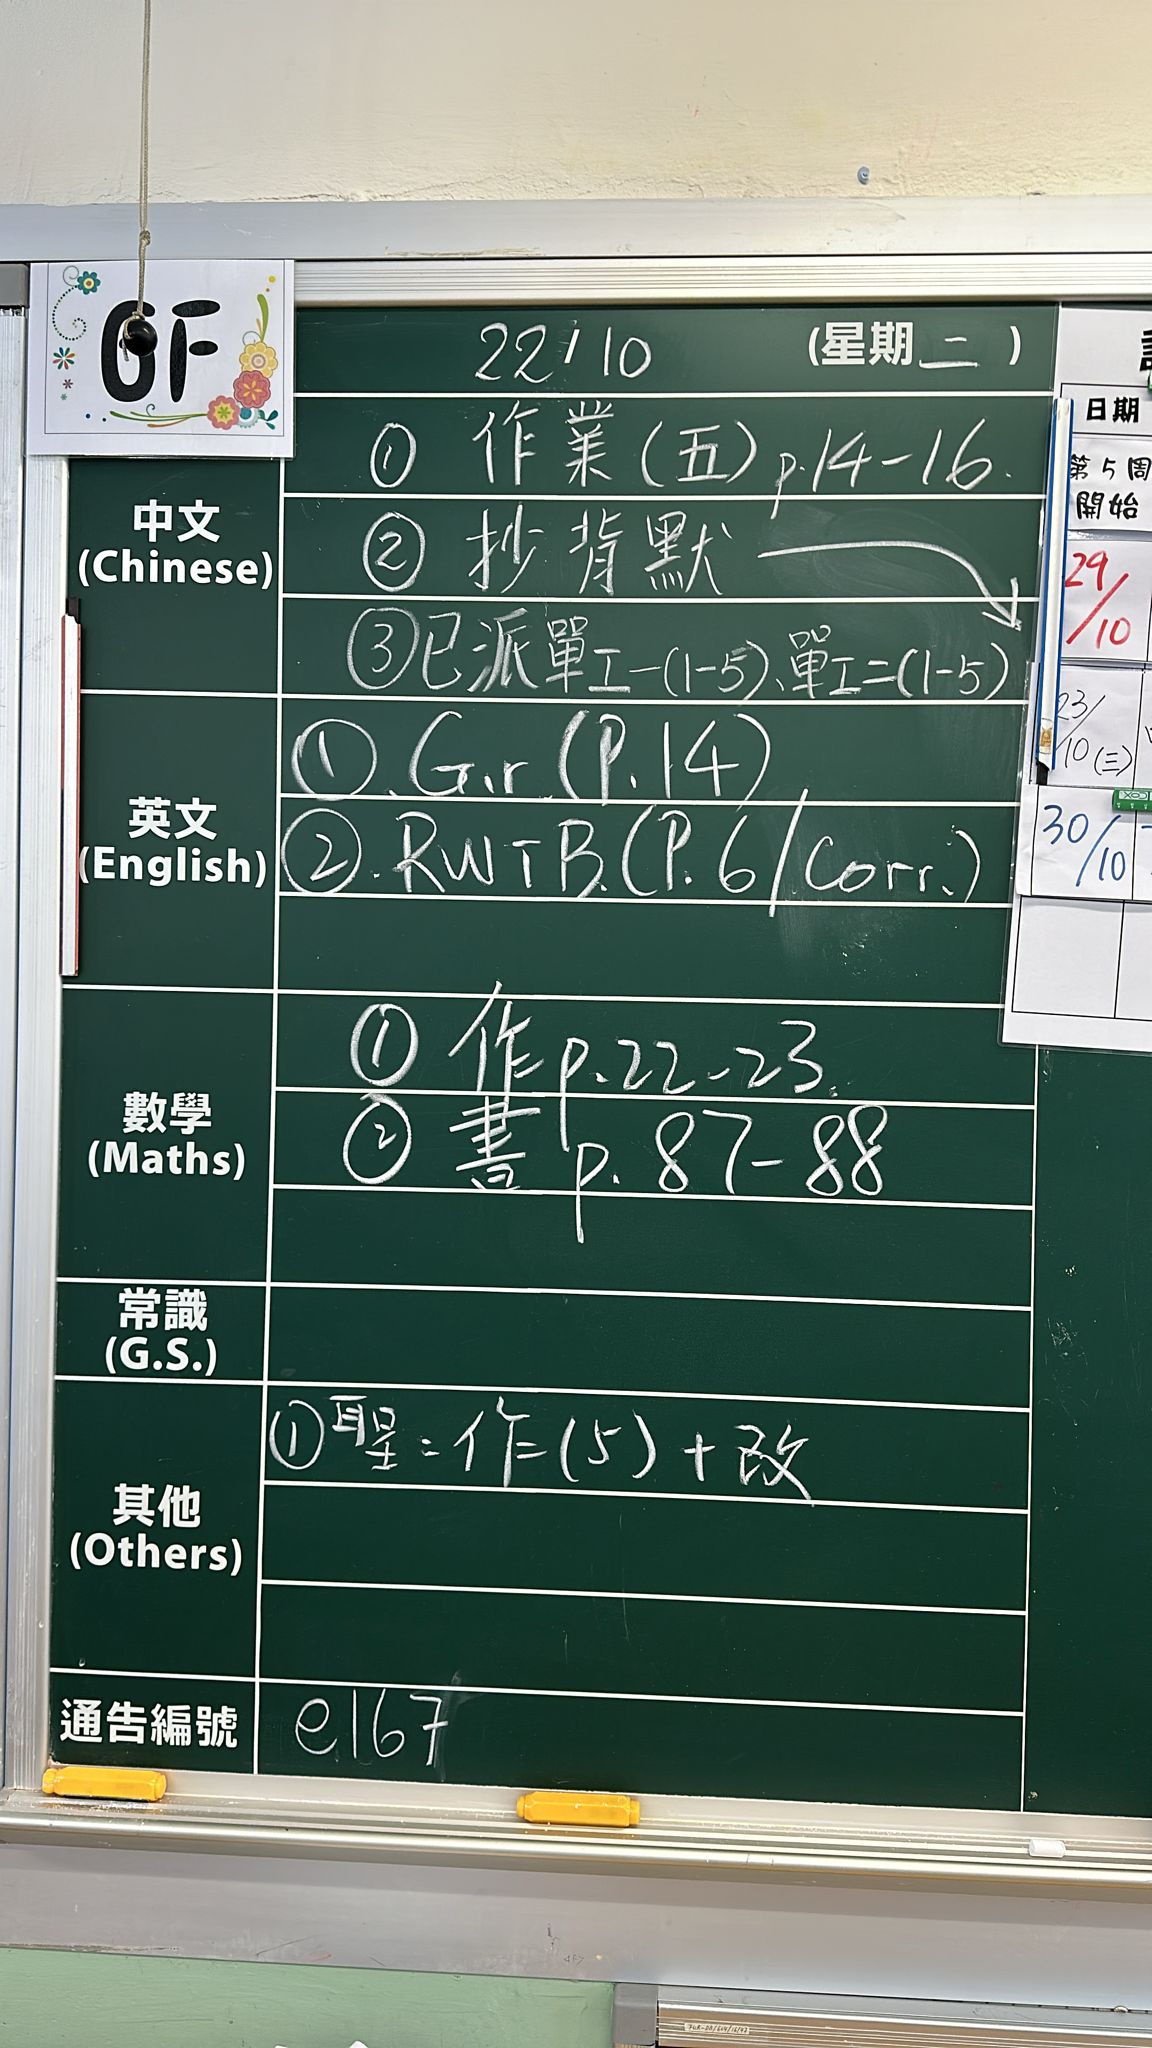 6F
22/10 (星期二)
中文
(Chinese)
① 作業(五) p.14-16.
② 抄背默
③已派單工一(1-5)、單工二(1-5)
英文
(English)
①. G.r. (P.14)
②. RWTB. (P.6/Corr.)
數學
(Maths)
① 作 p.22-23.
② 書 p.87-88
常識
(G.S.)
其他
(Others)
①聖:作(5)+改
通告編號
e167
日期
第5周
開始
29/10
23/10(三)
30/10